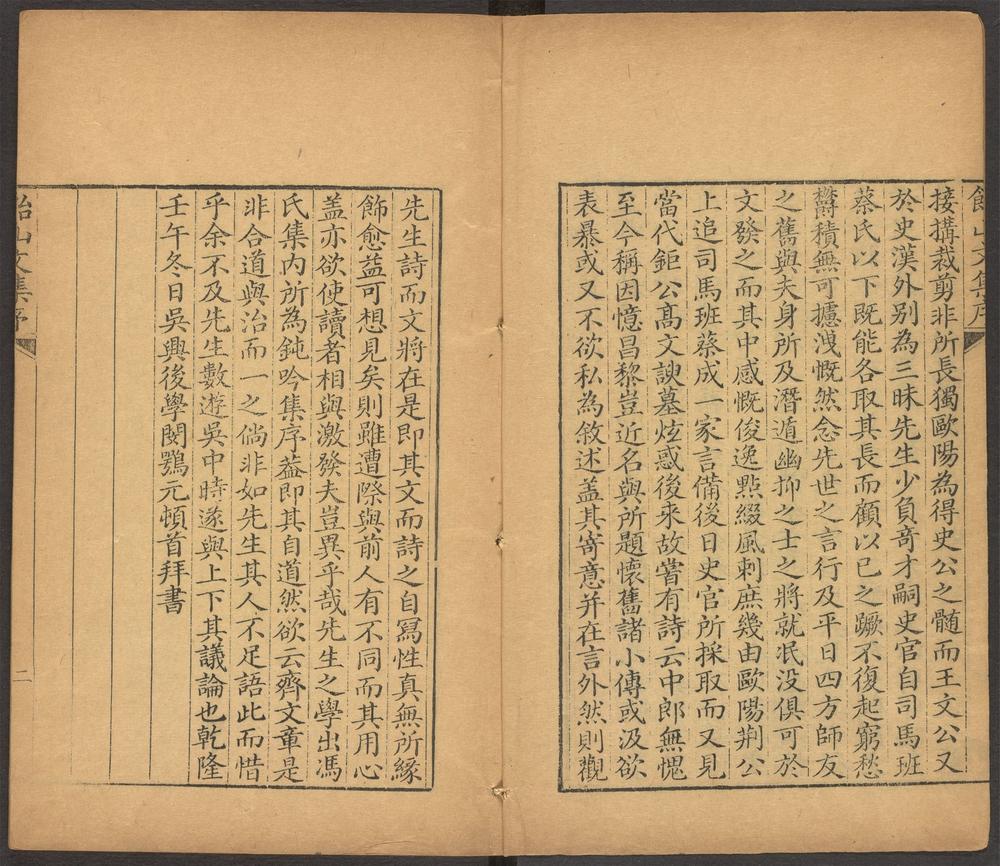 飴山文集序
接搆裁剪非所長獨歐陽為得史公之髄而王文公又
於史漢外别為三昧先生少負奇才嗣史官自司馬班
蔡氏以下既能各取其長而顧以已之蹶不復起窮愁
欝積無可攄洩慨然念先世之言行及平日四方師友
之舊與夫身所及潛遁幽抑之士之將就泯没俱可於
文發之而其中感慨俊逸㸃綴風刺庶幾由歐陽荆公
上追司馬班蔡成一家言備後日史官所採取而又見
當代鉅公髙文諛墓炫惑後来故嘗有詩云中郎無愧
至今稱因憶昌黎豈近名與所題懷舊諸小傳或汲欲
表暴或又不欲私為敘述盖其寄意并在言外然則觀
先生詩而文將在是即其文而詩之自冩性真無所緣
飾愈益可想見矣則雖遭際與前人有不同而其用心
盖亦欲使讀者相與激發夫豈異乎哉先生之學出馮
氏集内所為鈍吟集序葢即其自道然欲云齊文章是
非合道與治而一之倘非如先生其人不足語此而惜
乎余不及先生數遊吳中時遂與上下其議論也乾隆
壬午冬日吳興後學閔鶚元頓首拜書
飴山文集序
二